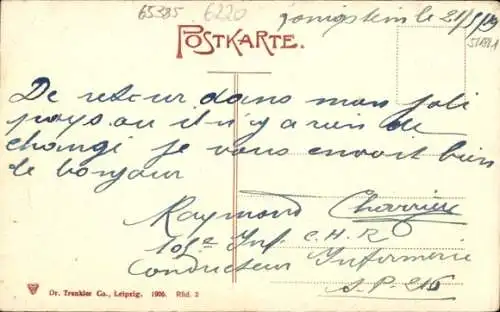 65385 6220 Konigstein le 21/5/19
51881
POSTKARTE.
De retour dans mon joli
pays ou il n'y a rien de
changé je vous envoit bien
le bonjour
Raymond
101e Inf. C.H.R
Conducteur Infirmerie
S.P. 216
Dr. Trenkler Co., Leipzig. 1906. Rfd. 2